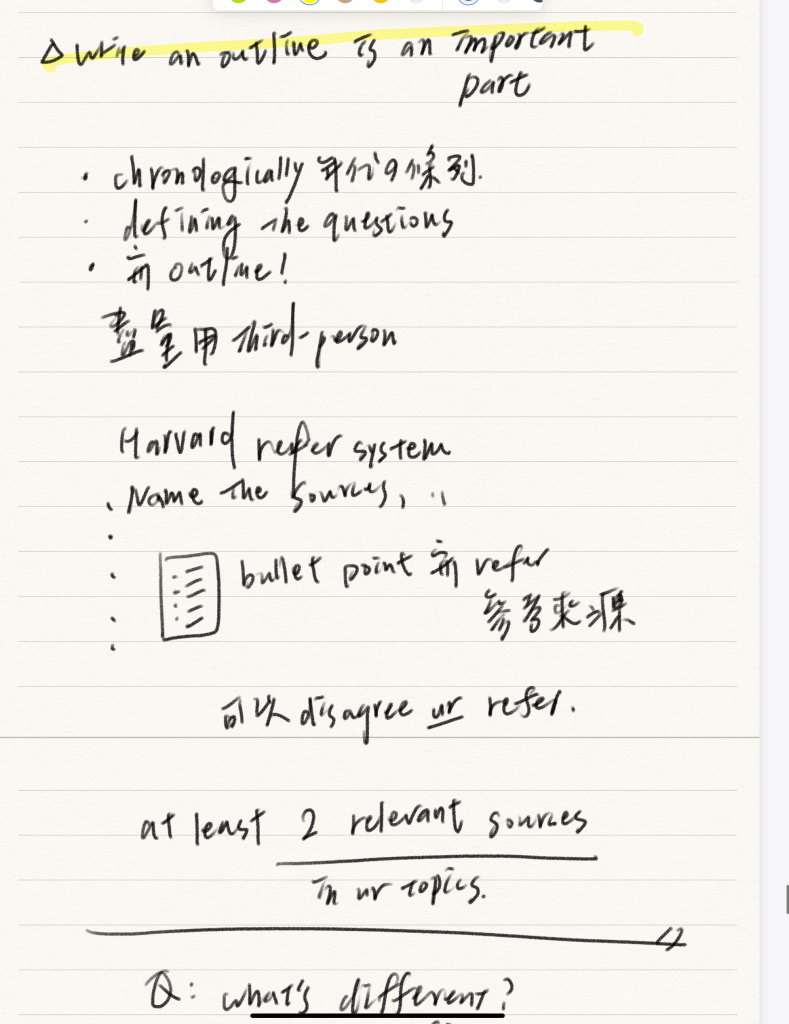 △ Write an outline is an important
part
· chronologically 年代的條列.
· defining the questions
· 的 outline!
盡量用 third-person
Harvard refer system
· Name the sources, ..
bullet point 的 refer
參考來源
可以 disagree ur refer.
at least 2 relevant sources
in ur topics.
Q: what's different?